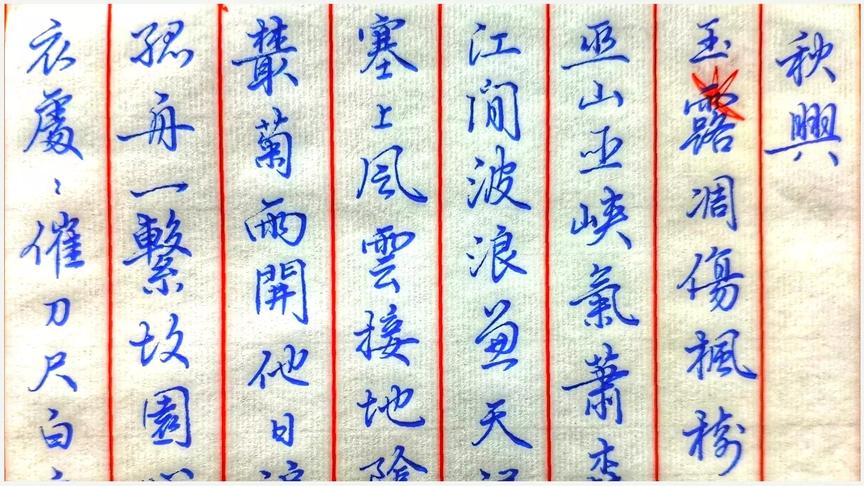 秋興
玉露凋傷楓樹
巫山巫峽氣蕭森
江間波浪兼天
塞上風雲接地陰
叢菊兩開他日
孤舟一繫故園
衣處〻催刀尺白